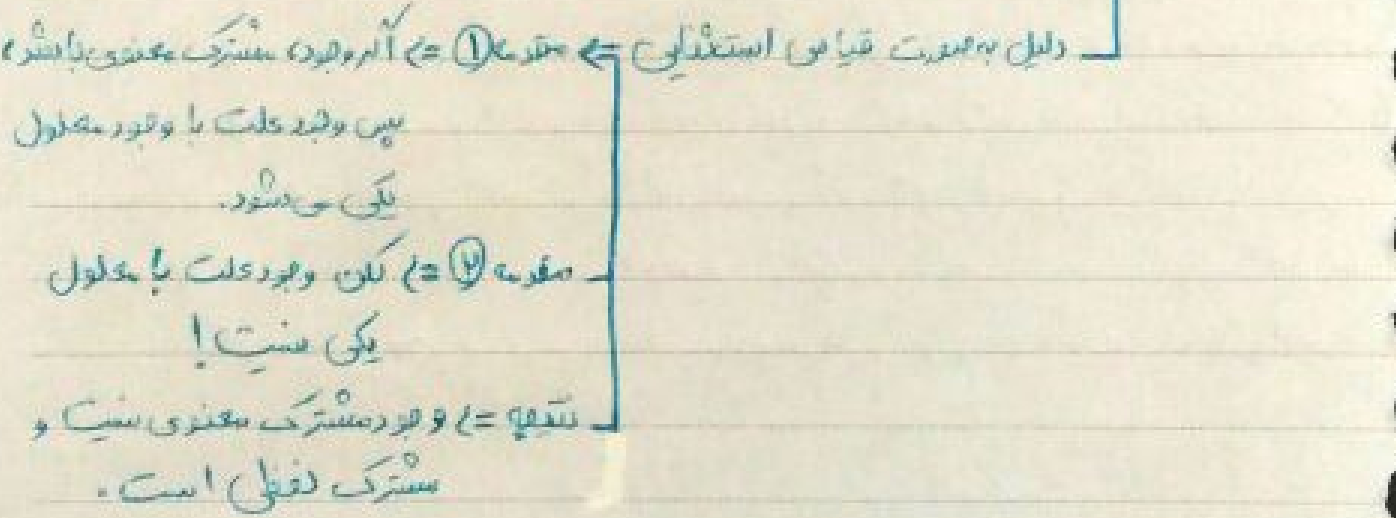 دلیل به صورت قیاس استثنایی => مقدمه ① => اگر وجود، مشترک معنوی باشد،
پس وجود علت با وجود معلول
یکی می‌شود.
مقدمه ② => لکن وجود علت با معلول
یکی نیست!
نتیجه => وجود مشترک معنوی نیست و
مشترک لفظی است.